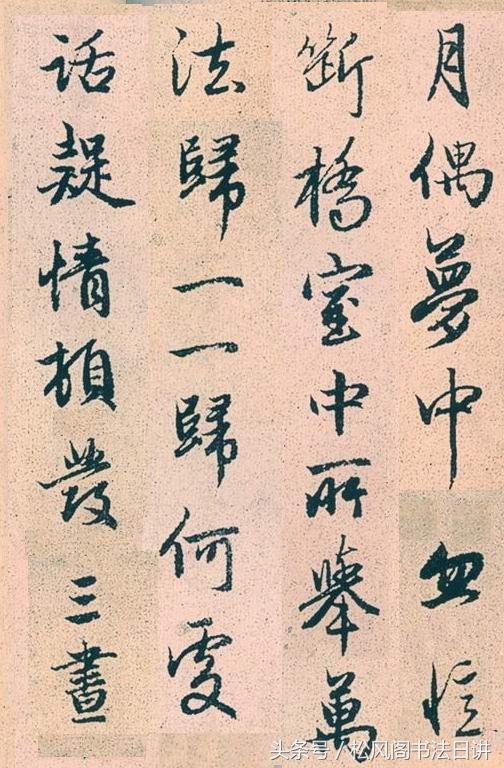 月偶夢中忽憶
斷橋室中所舉萬
法歸一一歸何處
話疑情頓發三晝
头条号 / 松风阁书法日讲